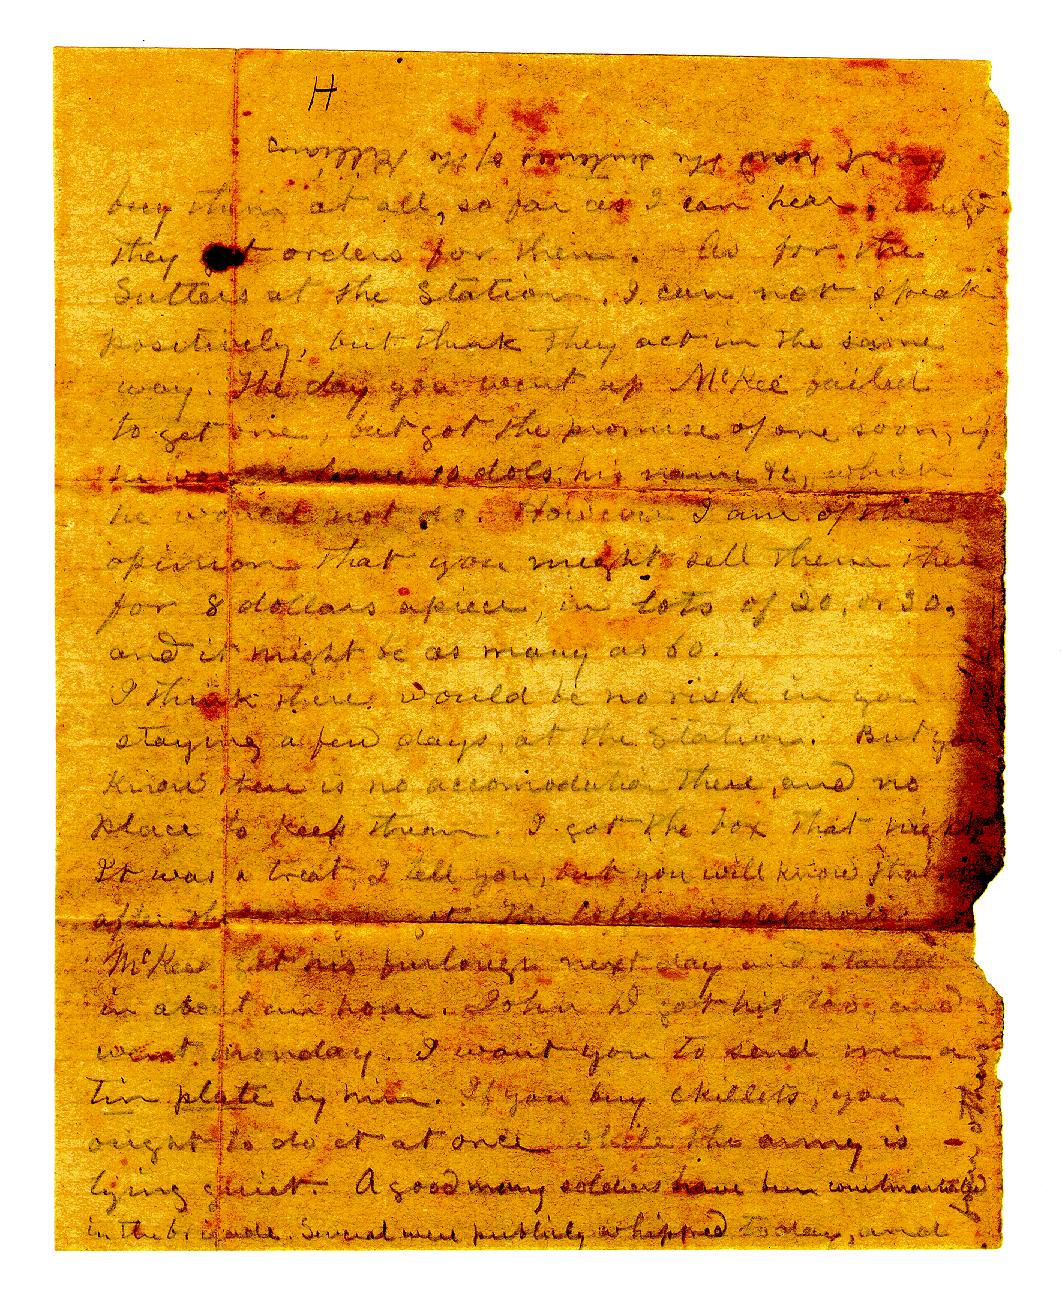 H
buy them at all, so far as I can hear, unless
they get orders for them. As for the
Sutlers at the Station, I can not speak
positively, but think they act in the same
way. The day you went up McKee failed
to get one, but got the promise of one soon, if
he would leave 10 dols, his name &c, which
he would not do. However I am of the
opinion that you might sell them there
for 8 dollars apiece, in lots of 20, or 30,
and it might be as many as 60.
I think there would be no risk in you
staying a few days, at the Station. But you
know there is no accomodation there, and no
place to keep them. I got the box that night
It was a treat, I tell you, but you will know that
after the got. The coffee is delicious
McKee got his furlough next day and started
in about an hour. John D got his too, and
went Monday. I want you to send me a
tin plate by him. If you buy skillets, you
ought to do it at once while the army is
lying quiet. A good many soldiers have been courtmartialed
in the brigade. Several were publicly whipped today, and
four others
heard the sentence of the